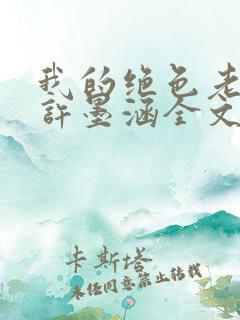 我的绝色老
許墨涵全文
卡斯塔
未经同意禁止转载